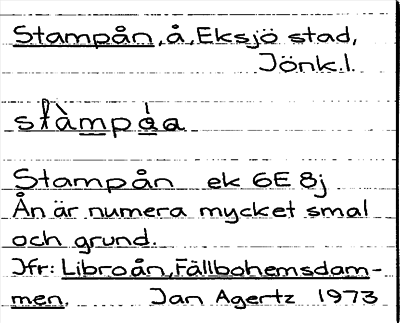 Stampån, å, Eksjö stad,
Jönk.l.
stàmpáa
Stampån ek 6E 8j
Ån är numera mycket smal
och grund.
Jfr: Libroån, Fällbohemsdam-
men. Jan Agertz 1973